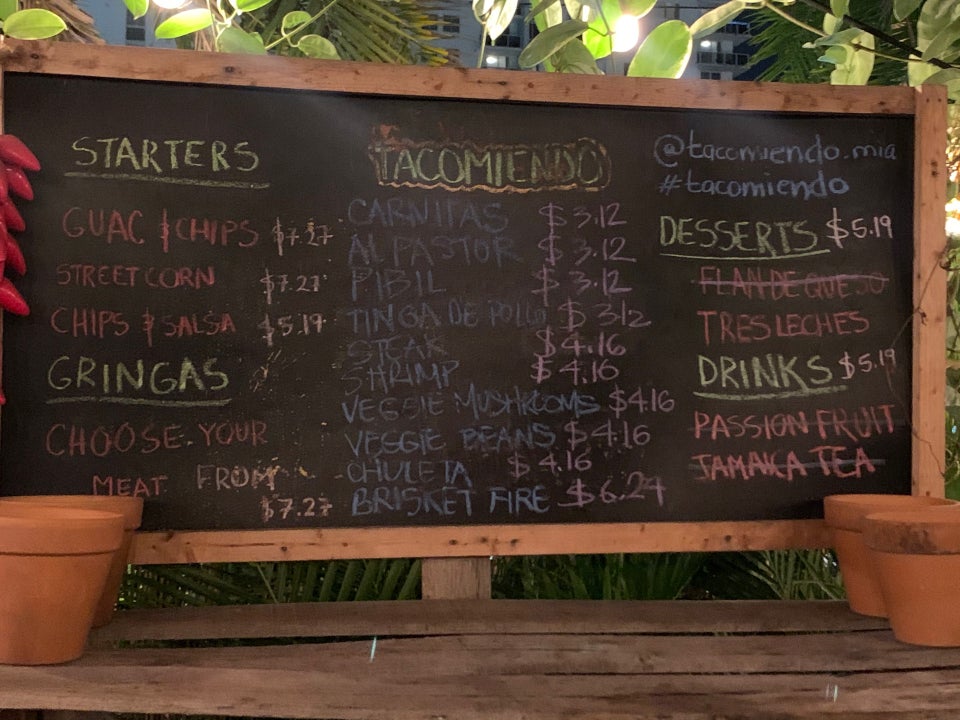 STARTERS
GUAC & CHIPS $7.27
STREET CORN $7.27
CHIPS & SALSA $5.19
GRINGAS
CHOOSE YOUR
MEAT FROM
$7.27
TACOMIENDO
CARNITAS $3.12
AL PASTOR $3.12
PIBIL $3.12
TINGA DE POLLO $3.12
STEAK $4.16
SHRIMP $4.16
VEGGIE MUSHROOMS $4.16
VEGGIE BEANS $4.16
CHULETA $4.16
BRISKET FIRE $6.24
@tacomiendo.mia
#tacomiendo
DESSERTS $5.19
FLAN DE QUESO
TRES LECHES
DRINKS $5.19
PASSION FRUIT
JAMAICA TEA